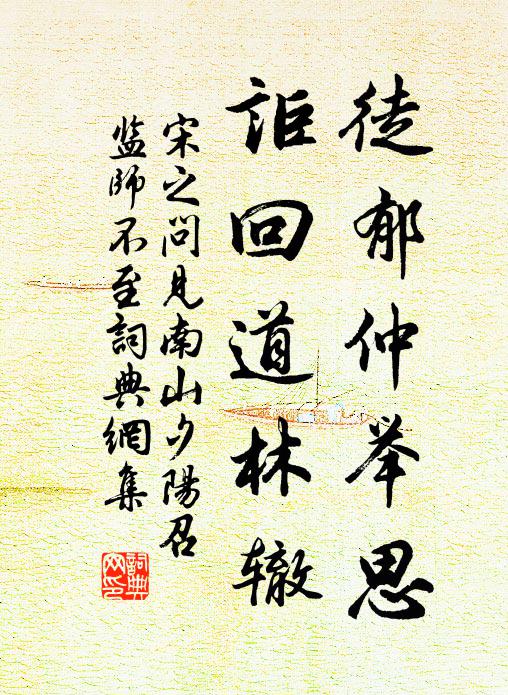 徒郁仲举思
詎回道林辙
宋之问見南山夕陽召
监師不至詞典網集
詞典
网印